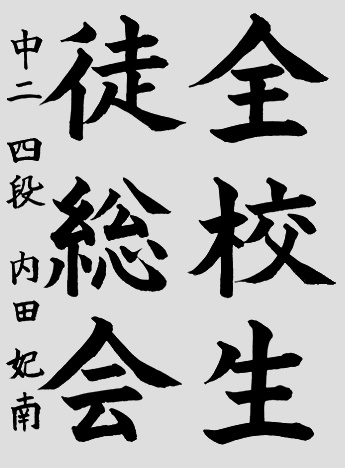 全校生
徒総会
中二 四段 内田 妃南